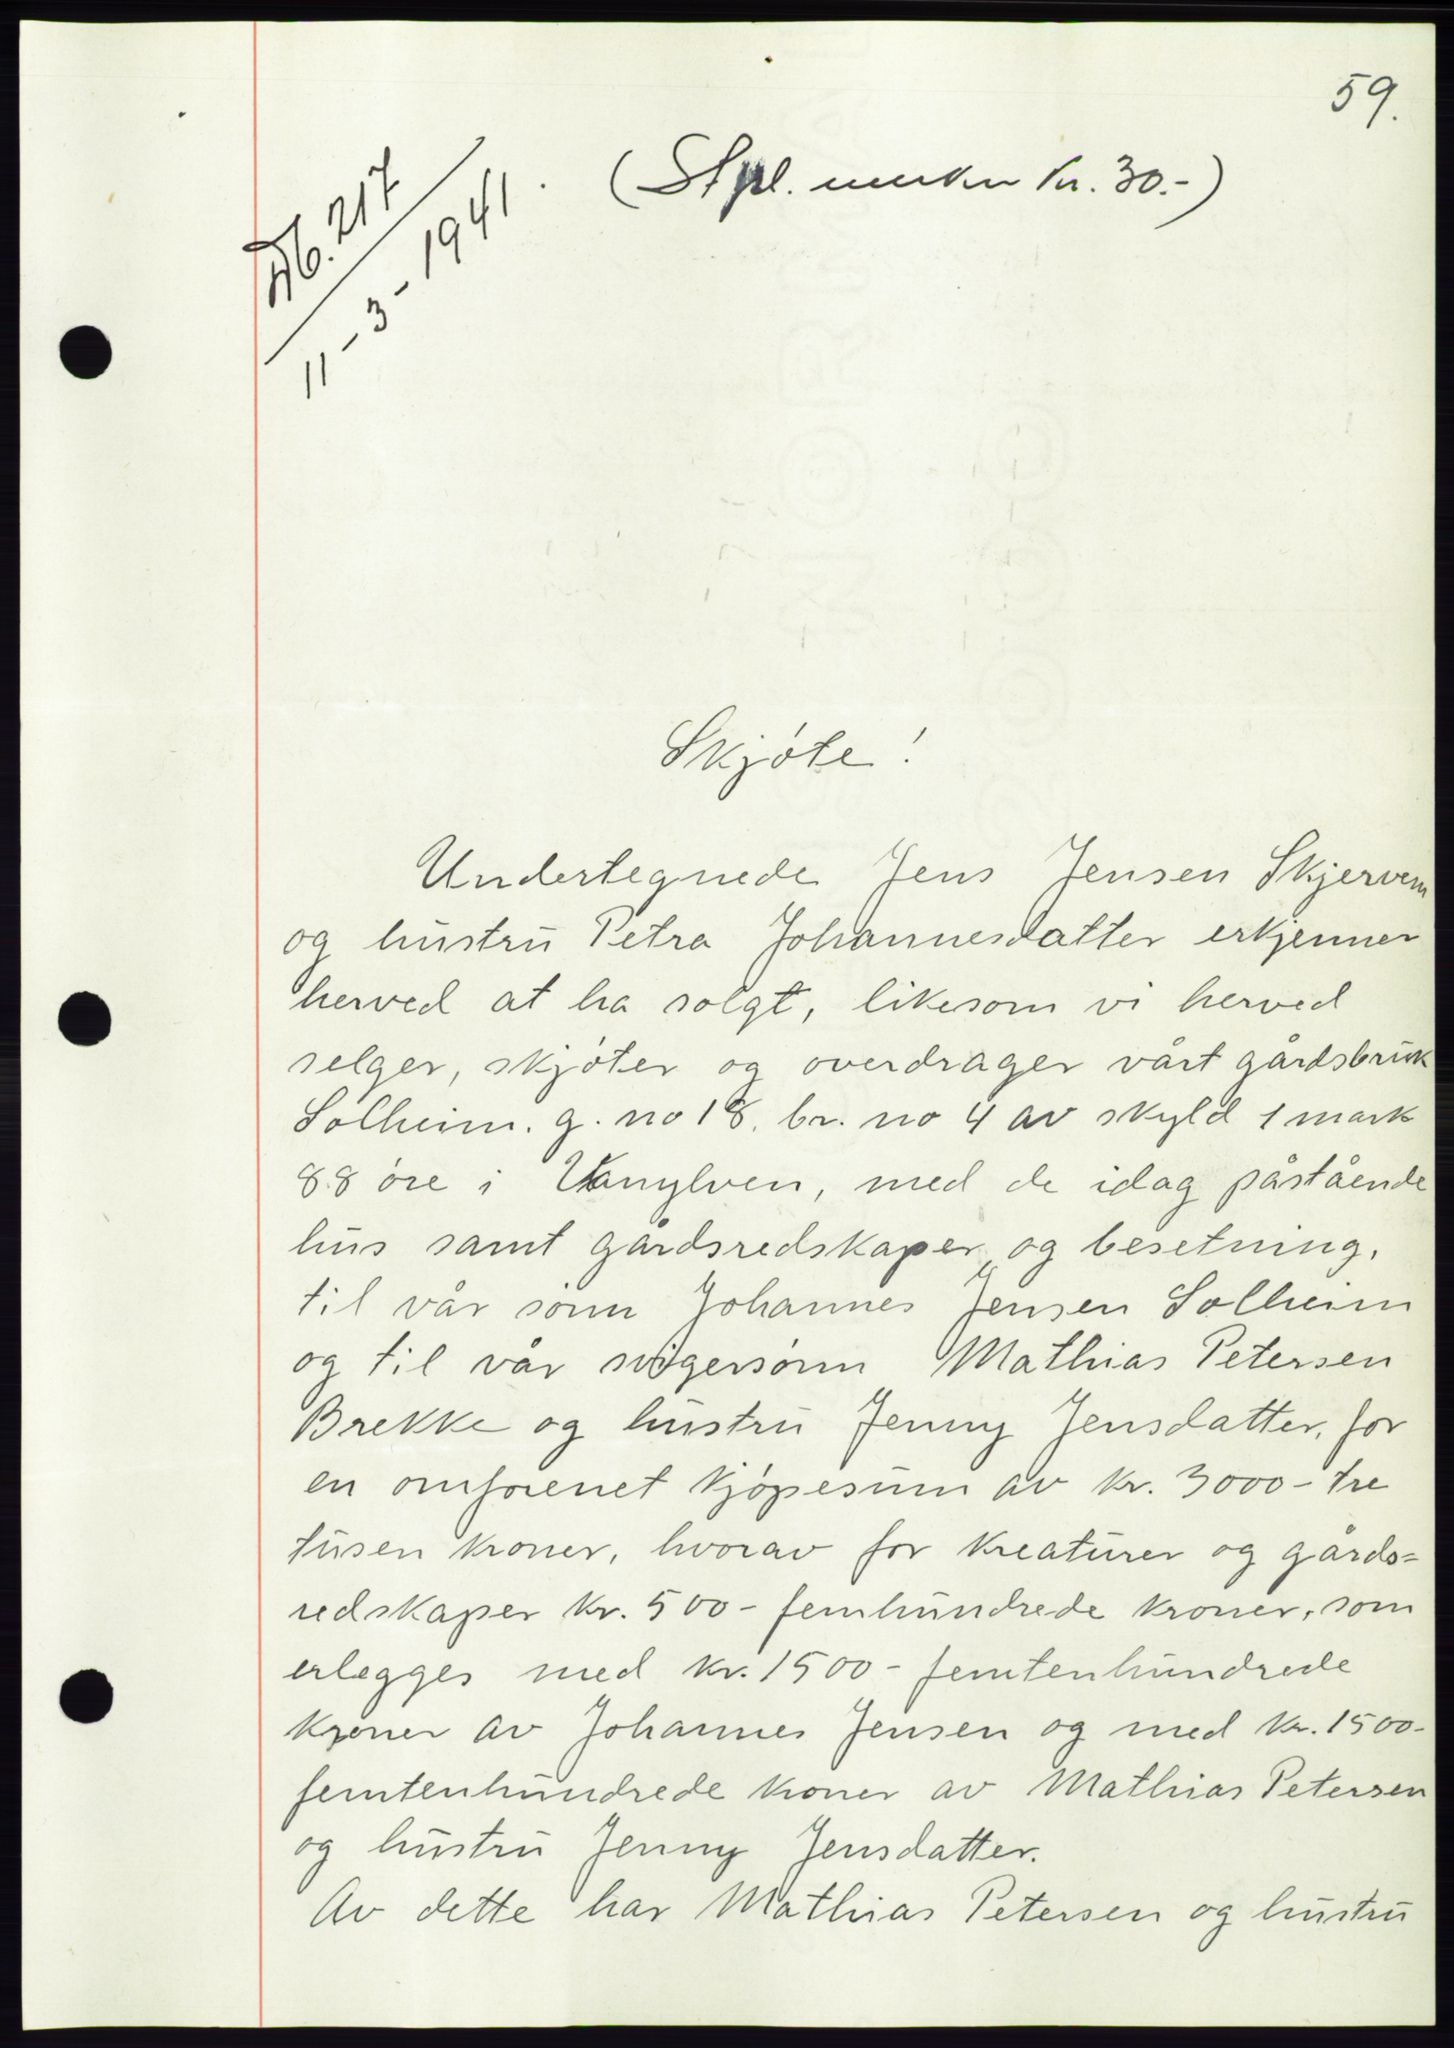 59.
Db. 217
11-3-1941.
(Stpl. merker kr. 30.-)
Skjøte!
Undertegnede Jens Jensen Skjervem
og hustru Petra Johannesdatter erkjenner
herved at ha solgt, likesom vi herved
selger, skjøter og overdrager vårt gårdsbruk
Solheim. g. no 18. br. no 4 av skyld 1 mark
88 øre i Vanylven, med de idag påstående
hus samt gårdsredskaper, og besetning,
til vår sønn Johannes Jensen Solheim
og til vår svigersønn Mathias Petersen
Brekke og hustru Jenny Jensdatter, for
en omforenet kjøpesum av kr. 3000- tre
tusen kroner, hvorav for kreaturer og gårds=
redskaper kr. 500- femhundrede kroner, som
erlegges med kr. 1500- femtenhundrede
kroner av Johannes Jensen og med kr. 1500-
femtenhundrede kroner av Mathias Petersen
og hustru Jenny Jensdatter.
Av dette har Mathias Petersen og hustru